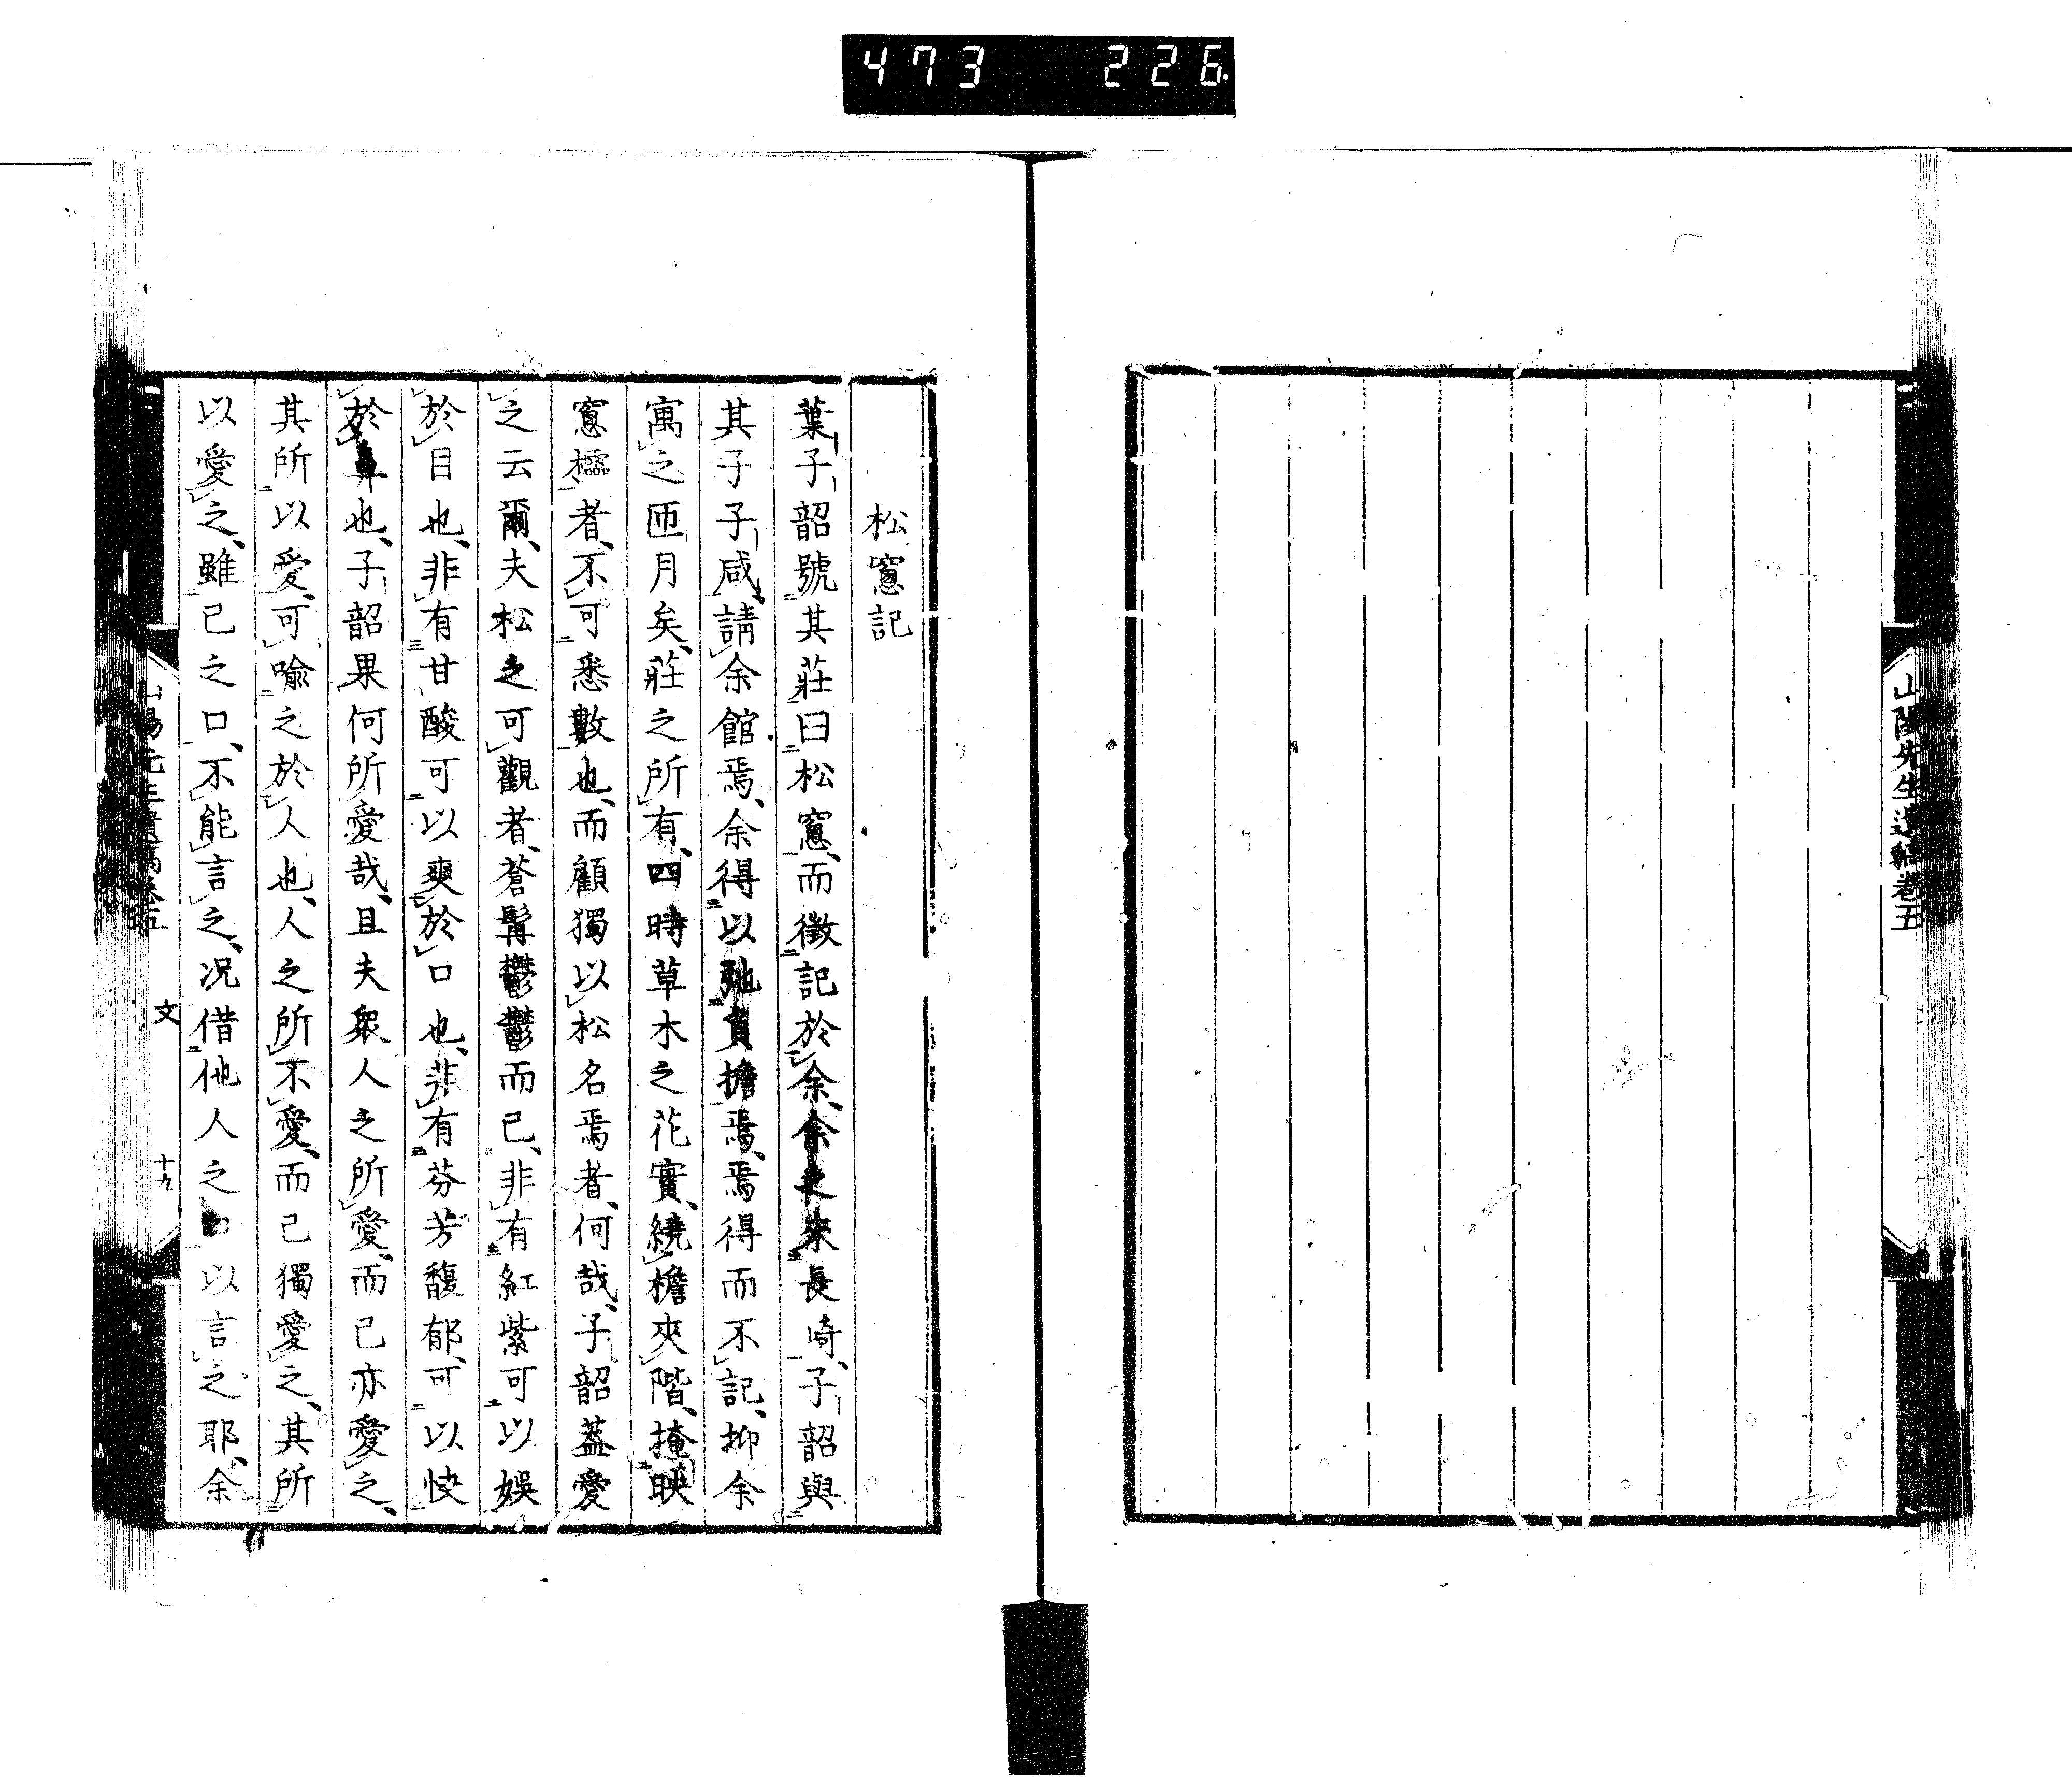 473 226
山陽先生遺稿卷五
松窻記
葉子韶號其莊曰松窻、而徵記於余、余之來長崎、子韶與
其子子咸、請余館焉、余得以弛負擔焉、焉得而不記、抑余
寓之匝月矣、莊之所有、四時草木之花實、繞檐夾階、掩映
窻櫺者、不可悉數也、而顧獨以松名焉者、何哉、子韶蓋愛
之云爾、夫松之可觀者、蒼髯鬱鬱而已、非有紅紫可以娛
於目也、非有甘酸可以爽於口也、非有芬芳馥郁、可以快
於鼻也、子韶果何所愛哉、且夫衆人之所愛、而己亦愛之、
其所以愛、可喩之於人也、人之所不愛、而己獨愛之、其所
以愛之、雖己之口、不能言之、况借他人之口以言之耶、余
山陽先生遺稿卷五 文 十九